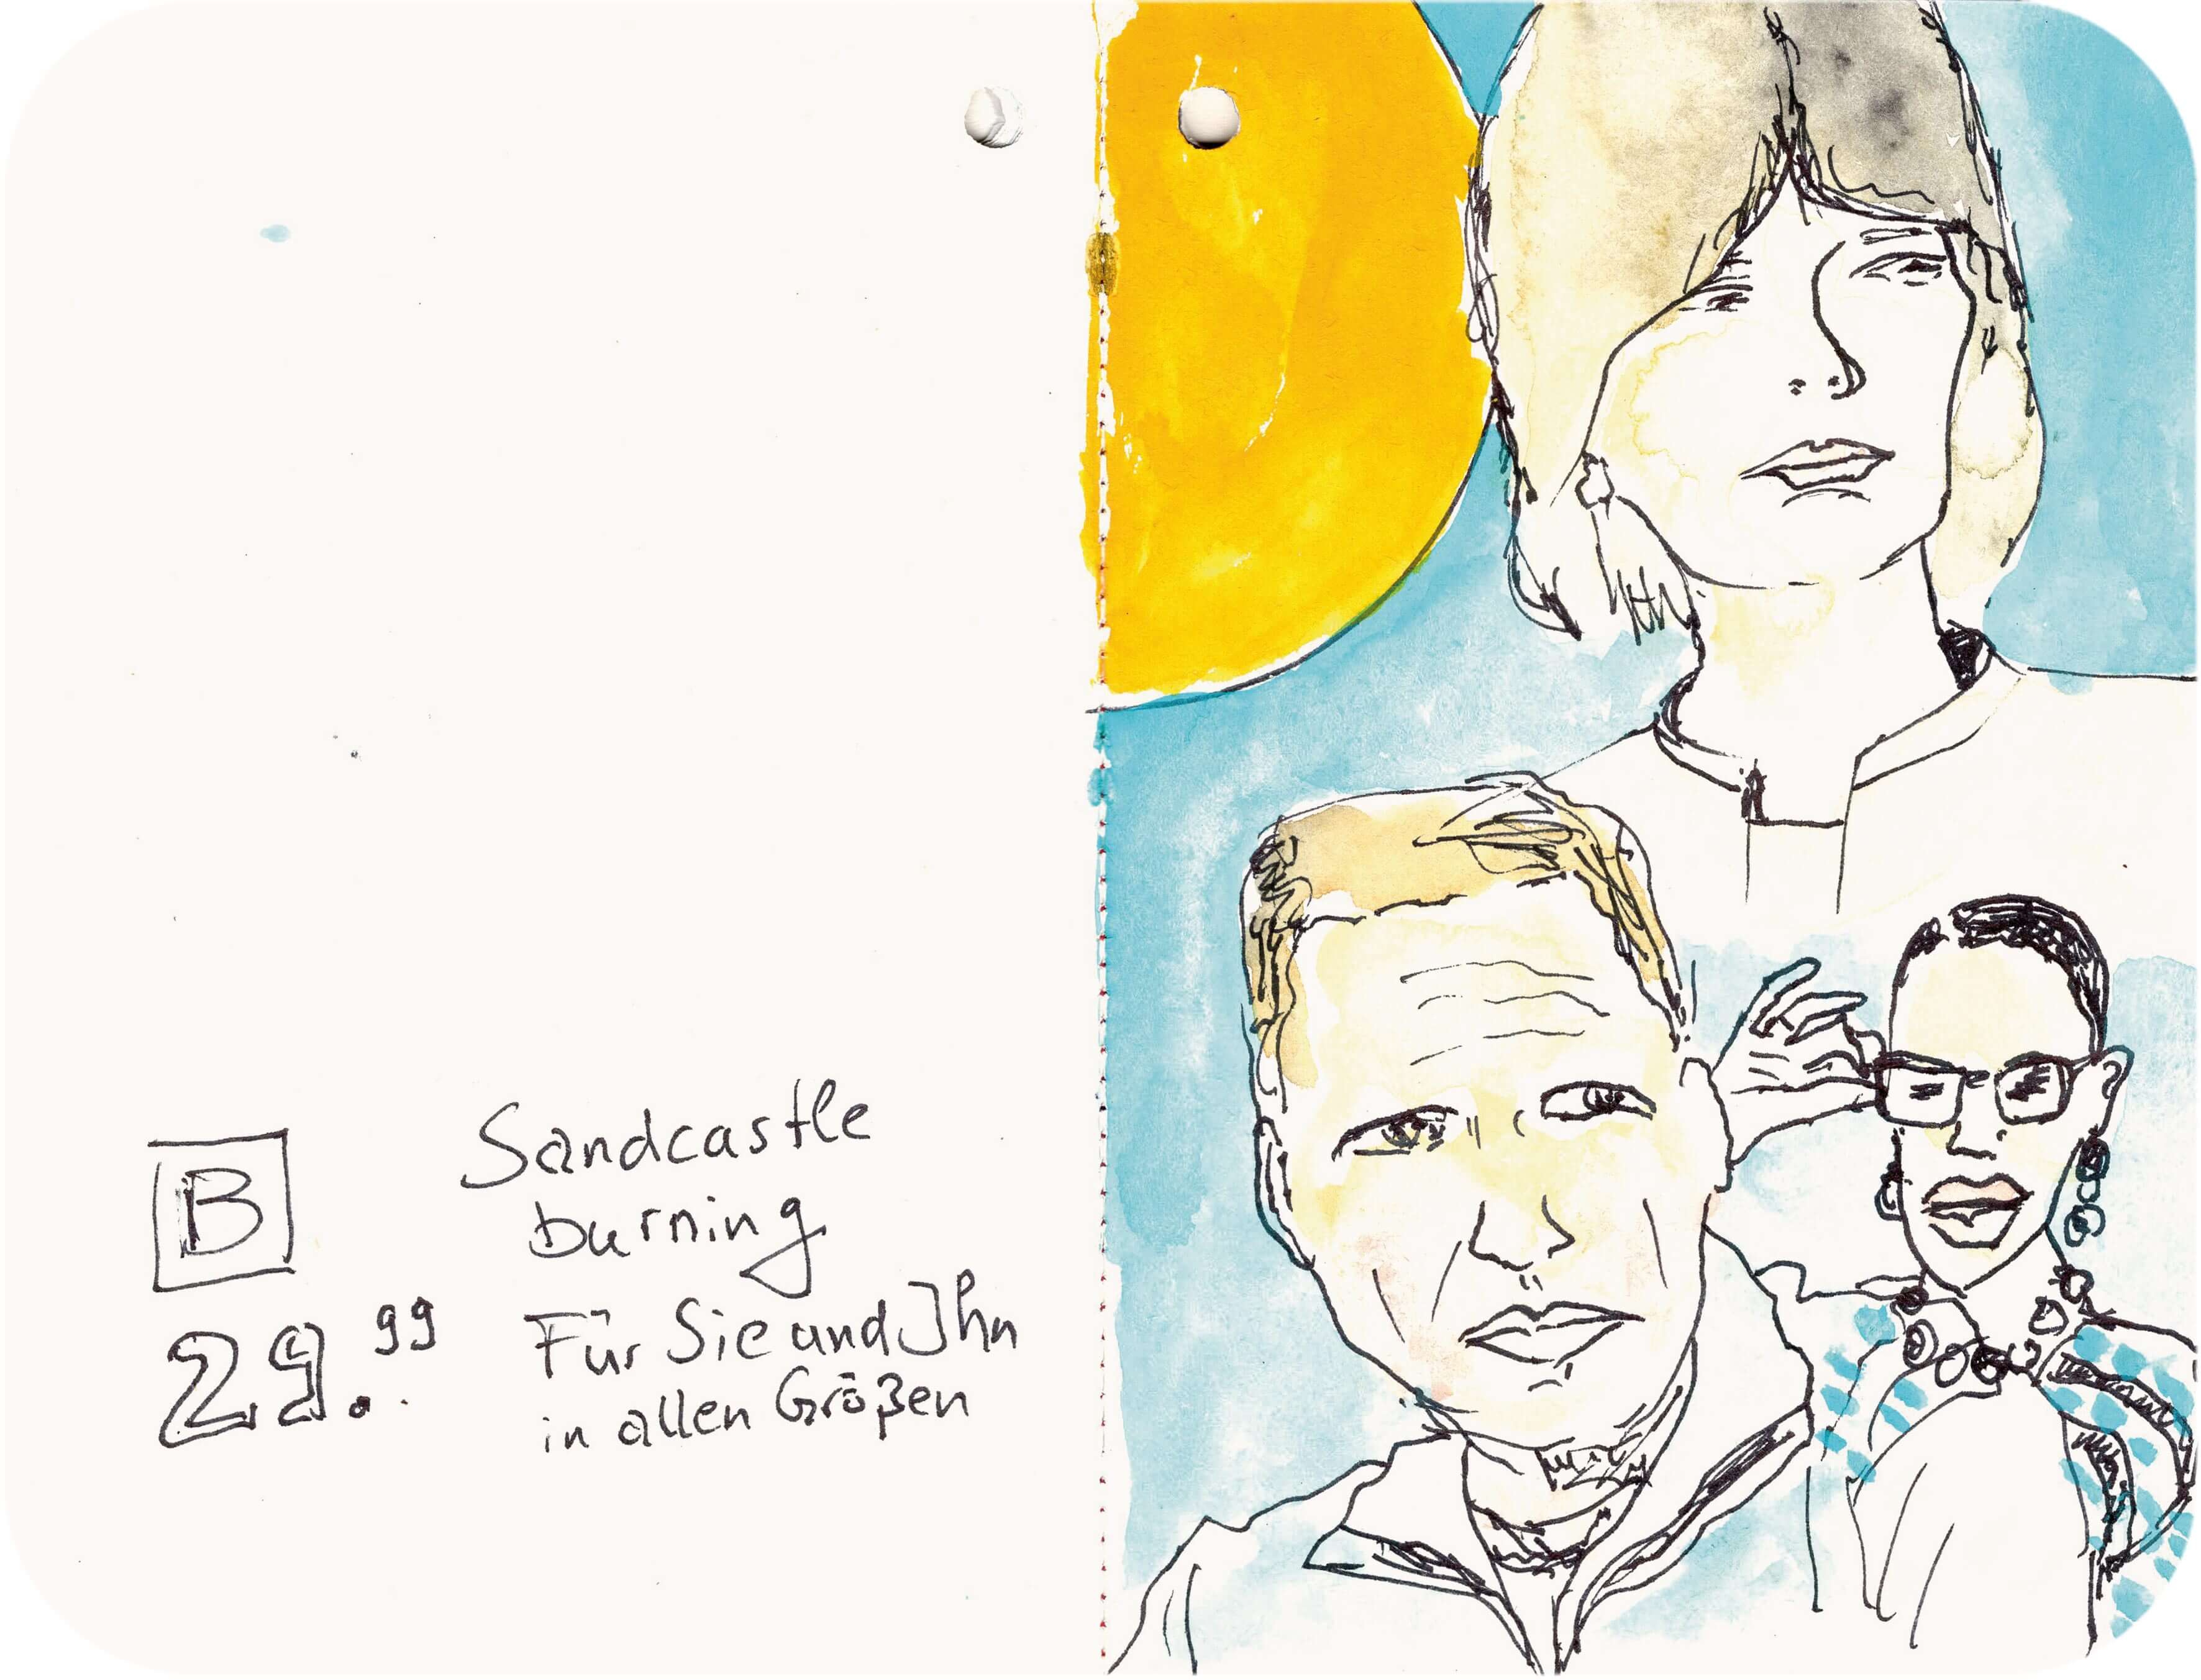 B
29.99
Sandcastle
burning
Für Sie und Ihn
in allen Größen